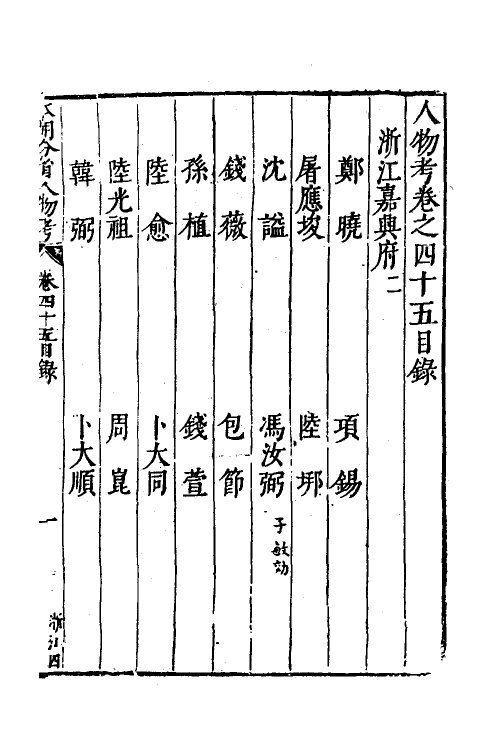 人物考卷之四十五目錄
浙江嘉興府二
鄭曉 項錫
屠應埈 陸邦
沈謐 馮汝弼 子敏功
錢薇 包節
孫植 錢萱
陸愈 卜大同
陸光祖 周崑
韓弼 卜大順
本朝分省人物考 卷四十五目錄 一 浙江四